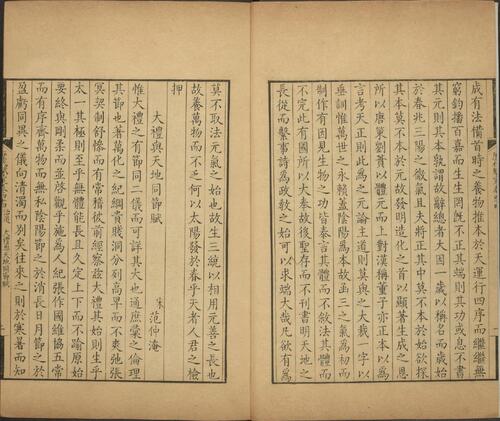 成有法備首時之養物推本於天運行四序而繼繼無
窮鈞播百嘉而生生罔旣不正其端則其功或息不書
其元則其本孰謂故辭總者大因一歲以稱名而歲始
於春兆三陽之微氣且夫將正其中莫不本於始欲探
其本莫不本於元故發明造化之首以顯著生成之恩
所以唐策劉蕡以體元而上對漢稱董子亦正本以爲
言考天正則此爲之元論主道則莫與之大哉一字以
垂訓惟萬世之永賴蓋陰陽爲本故函三之氣爲初而
制作有因見生物之功皆泰言其體而不敘法其體而
不完此有國所以大奉故後聖存而不刊書明天地之
長從而繫事詩爲政教之始可以求端大哉凡欲有爲
莫不取法元氣之始也故生三統以相用元善之長也
故養萬物而不乏何以太陽發於春乎天者人君之檢
押
大禮與天地同節賦
宋范仲淹
惟大禮之有節同二儀而可詳其大也通庶彙之倫理
其節也著萬化之紀綱貴賤洞分列高卑而不爽弛張
冥契制舒慘而有常稽彼前經察茲大禮其始則生乎
太一其極則至乎無體能長且久定上下而不踰原始
要終與剛柔而並啓觀乎施爲人紀張作國維協五常
而有序齊萬物而無私陰陽節之於消長日月節之於
盈虧同異之儀向清濁而別矣往來之則於寒暑而知